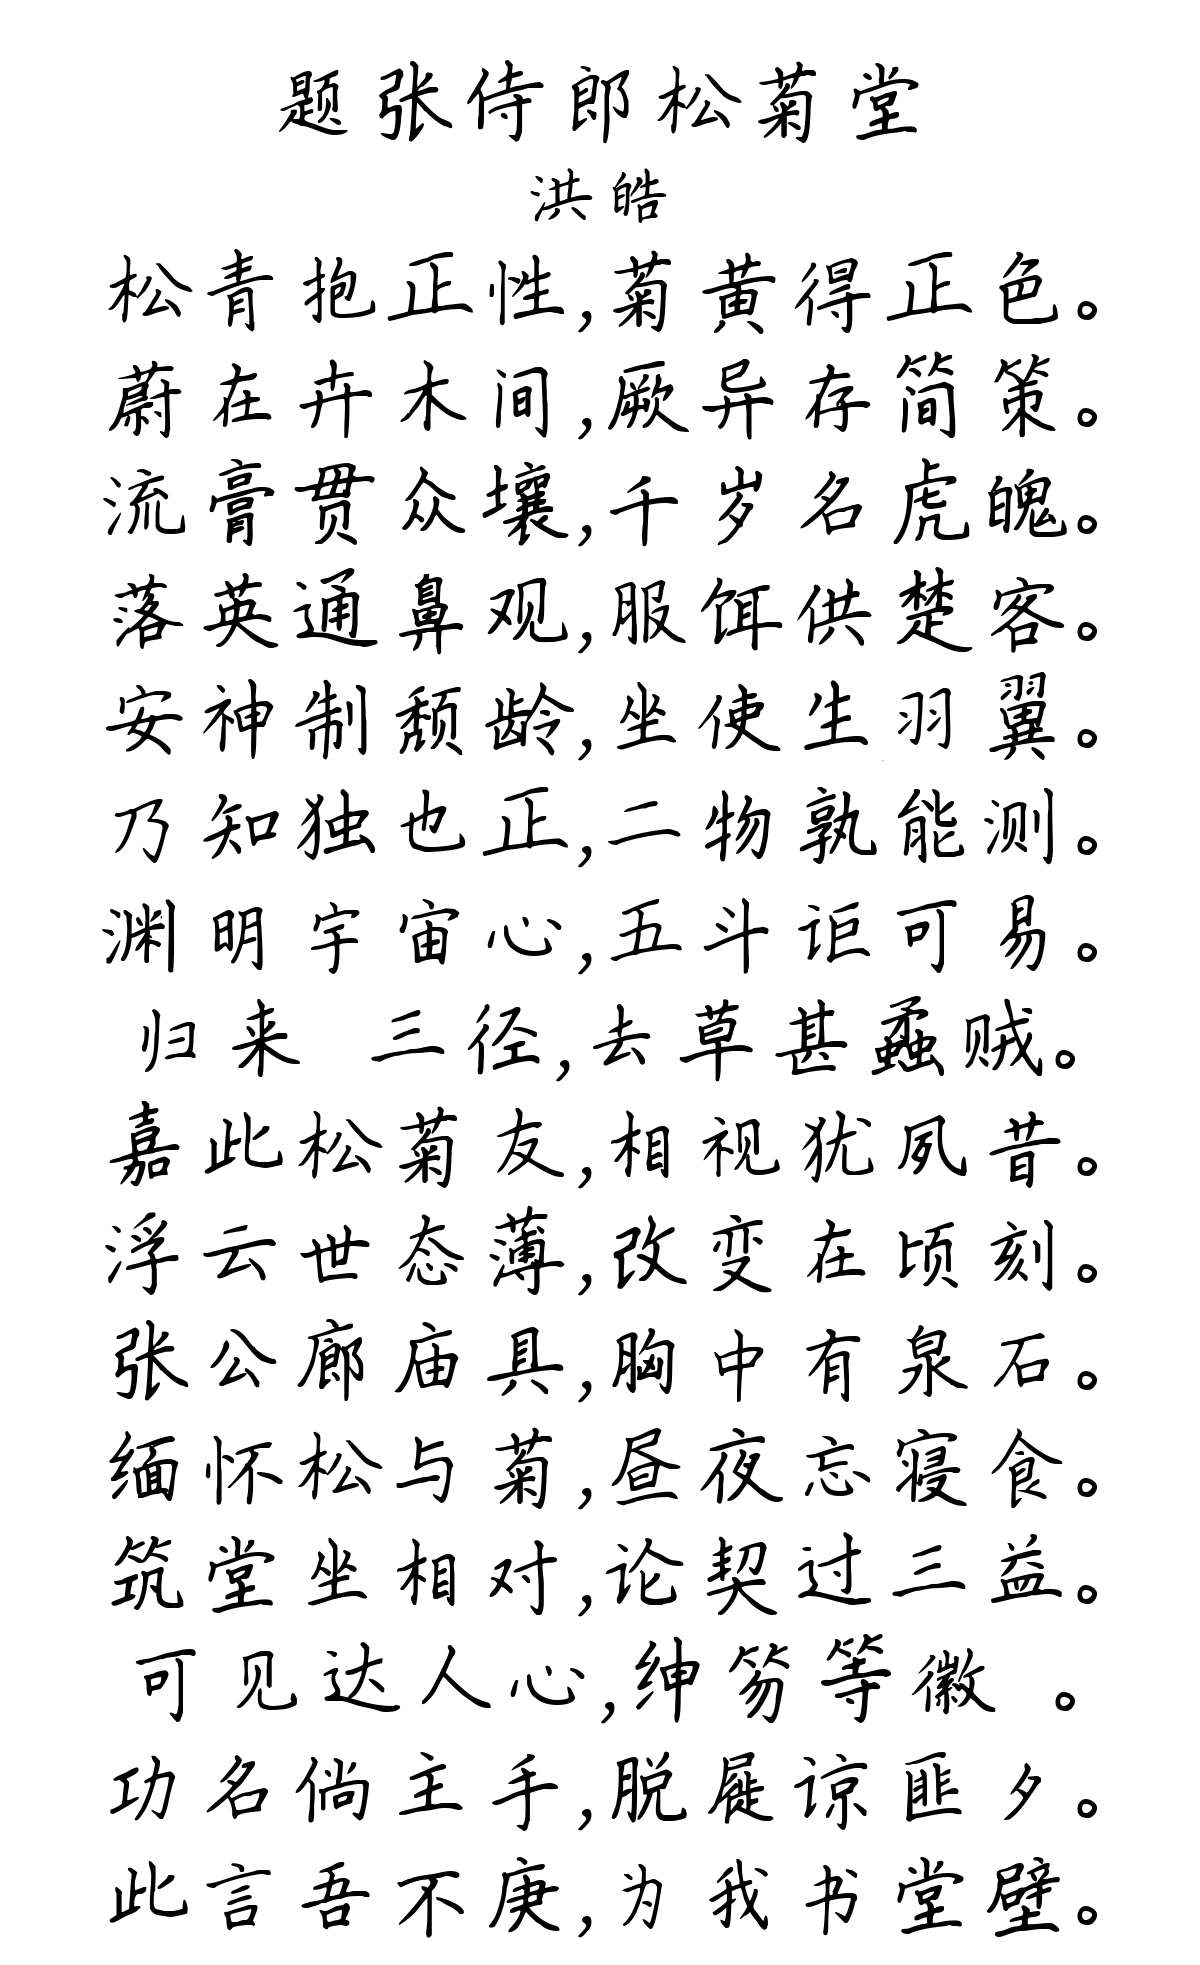 题张侍郎松菊堂
洪皓
松青抱正性,菊黄得正色。
蔚在卉木间,厥异存简策。
流膏贯众壤,千岁名虎魄。
落英通鼻观,服饵供楚客。
安神制颓龄,坐使生羽翼。
乃知独也正,二物孰能测。
渊明宇宙心,五斗讵可易。
归来 三径,去草甚蟊贼。
嘉此松菊友,相视犹夙昔。
浮云世态薄,改变在顷刻。
张公廊庙具,胸中有泉石。
缅怀松与菊,昼夜忘寝食。
筑堂坐相对,论契过三益。
可见达人心,绅笏等徽 。
功名倘主手,脱屣谅匪夕。
此言吾不庚,为我书堂壁。